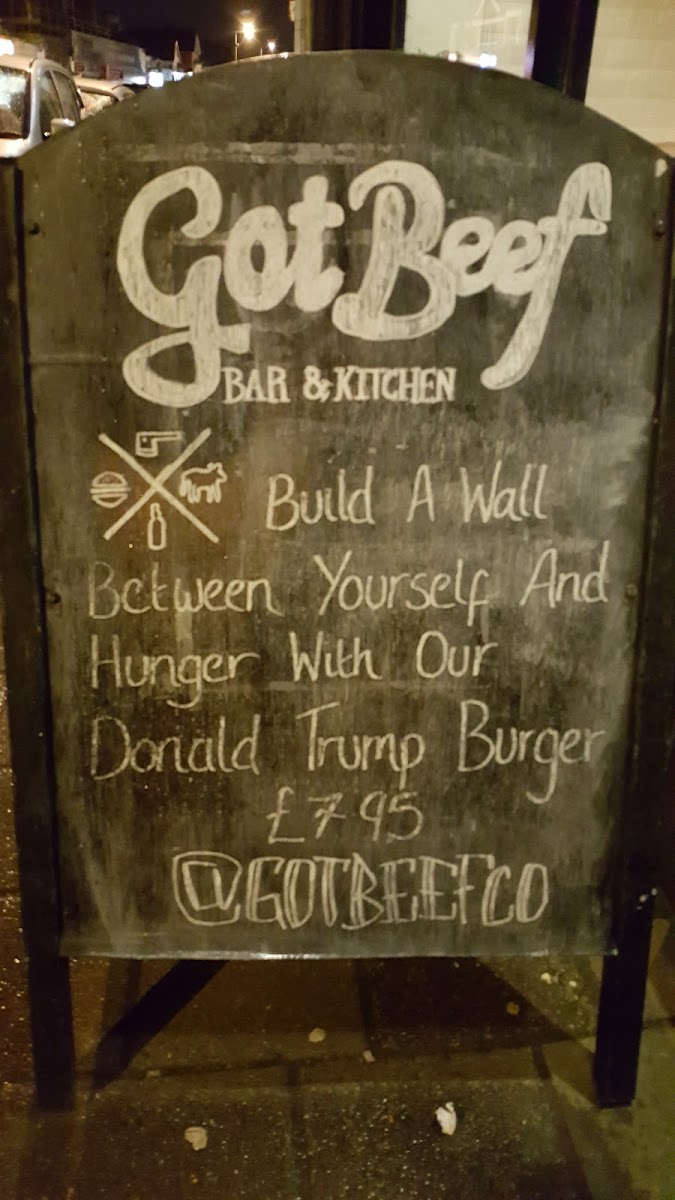 Got Beef
BAR & KITCHEN
Build A Wall
Between Yourself And
Hunger With Our
Donald Trump Burger
£7 95
@GOTBEEFCO